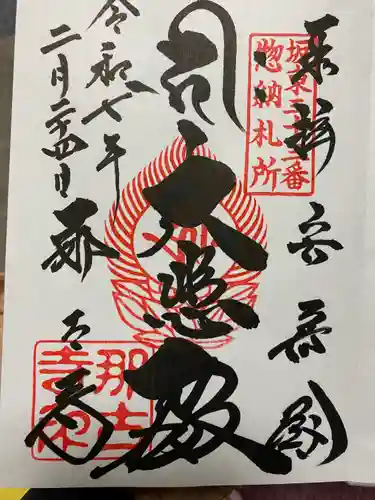 奉拝 安房國
坂東三十三番
惣納札所
大悲殿
令和七年
二月二十四日 那古寺